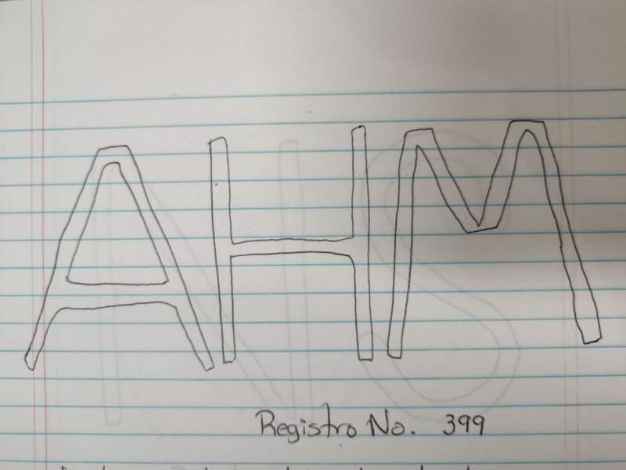 AHM
Registro No. 399